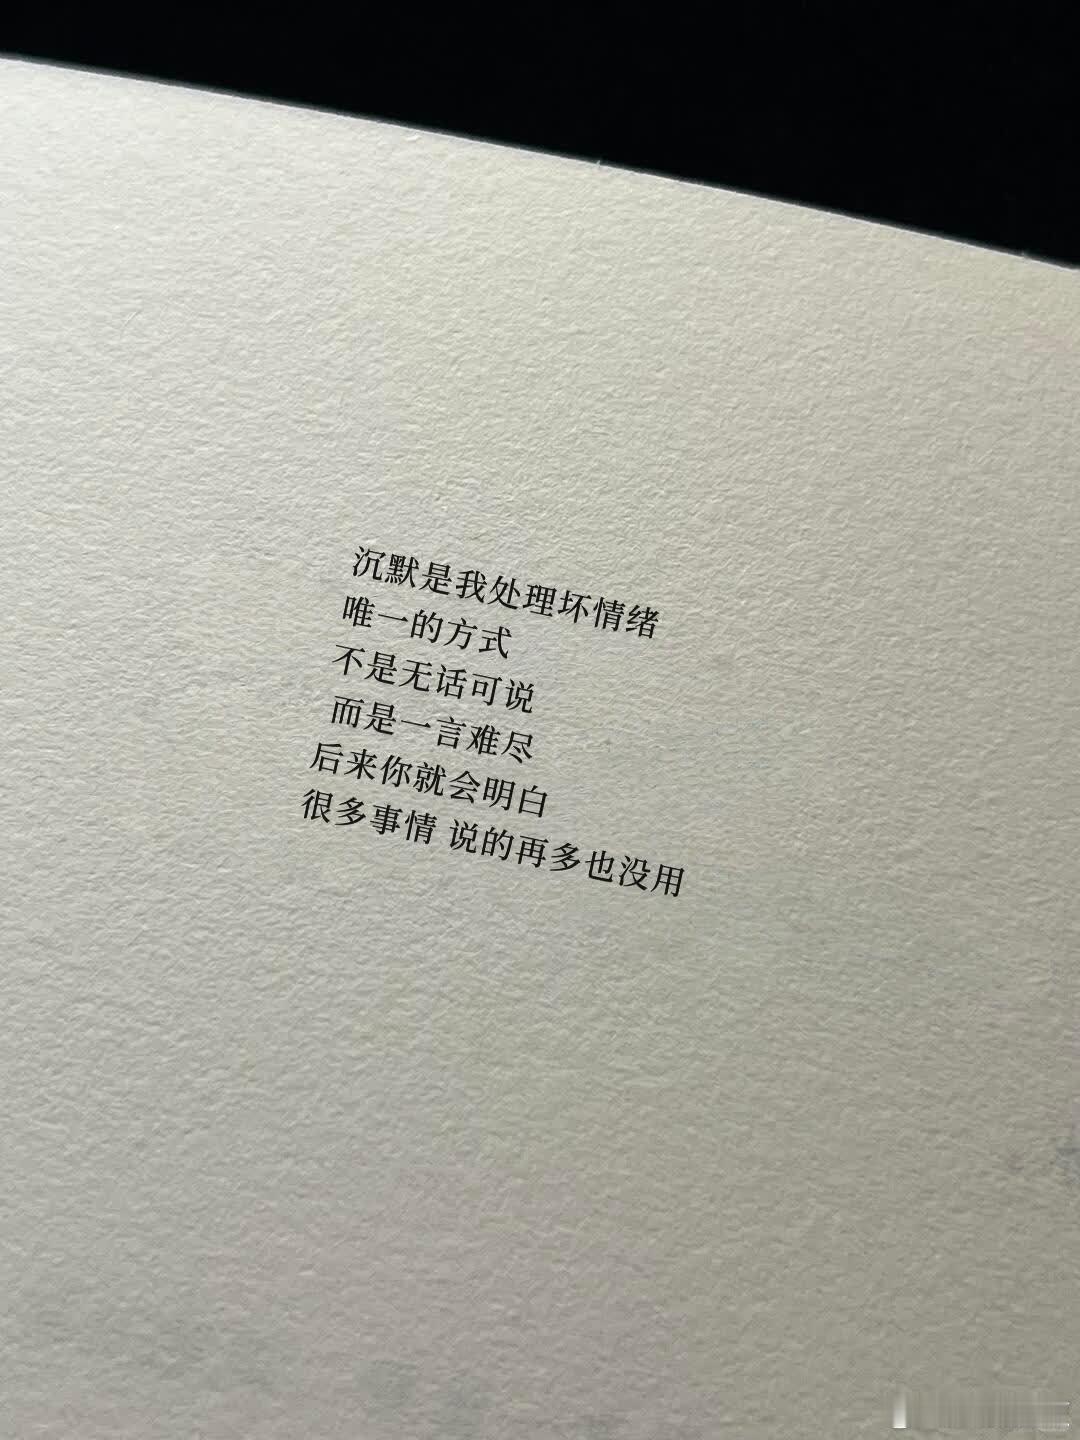 沉默是我处理坏情绪
唯一的方式
不是无话可说
而是一言难尽
后来你就会明白
很多事情 说的再多也没用